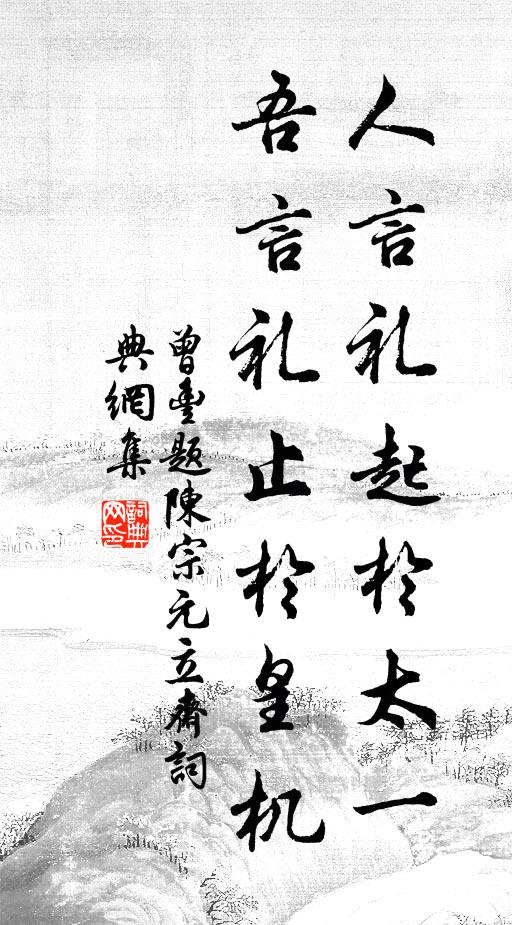 人言礼起於太一
吾言礼止於皇机
曾豐題陳宗元立齋詞
典網集
詞典网印